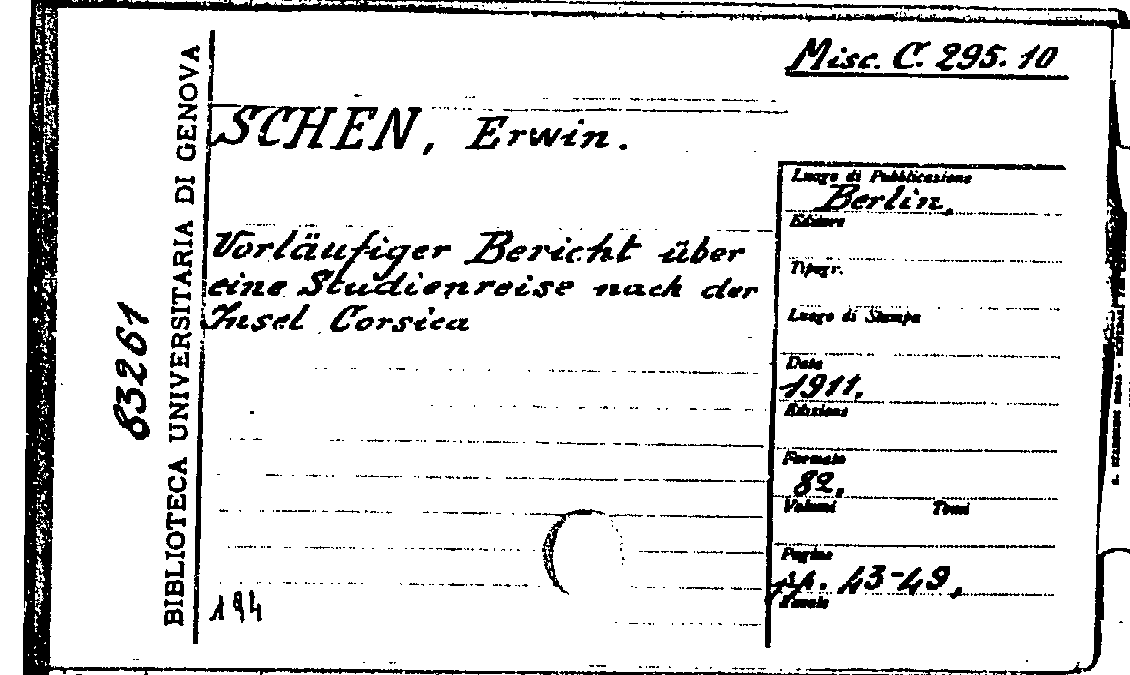 Misc. C. 295. 10
SCHEN, Erwin.
Vorläufiger Bericht über
eine Studienreise nach der
Insel Corsica
Luogo di Pubblicazione
Berlin.
Editore
Tipogr.
Luogo di Stampa
Data
1911.
Edizione
Formato
8º.
Volumi Tomi
Pagine
pp. 43-49.
194
83261
BIBLIOTECA UNIVERSITARIA DI GENOVA